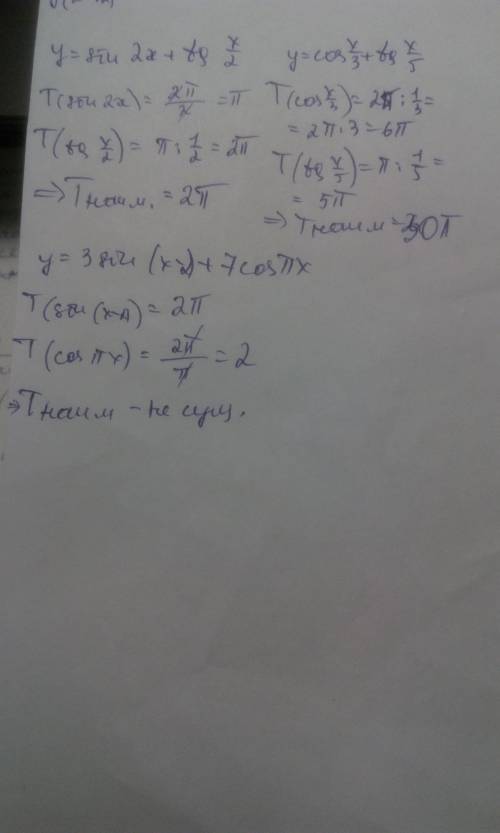 y = sin 2x + tg x/2
T(sin 2x) = 2π/2 = π
T(tg x/2) = π : 1/2 = 2π
⇒ Tнаим. = 2π
y = cos x/3 + tg x/5
T(cos x/3) = 2π : 1/3 =
= 2π · 3 = 6π
T(tg x/5) = π : 1/5 =
= 5π
⇒ Tнаим = 30π
y = 3 sin (x-2) + 7 cos πx
T(sin (x-2)) = 2π
T(cos πx) = 2π/π = 2
⇒ Tнаим - не сущ.